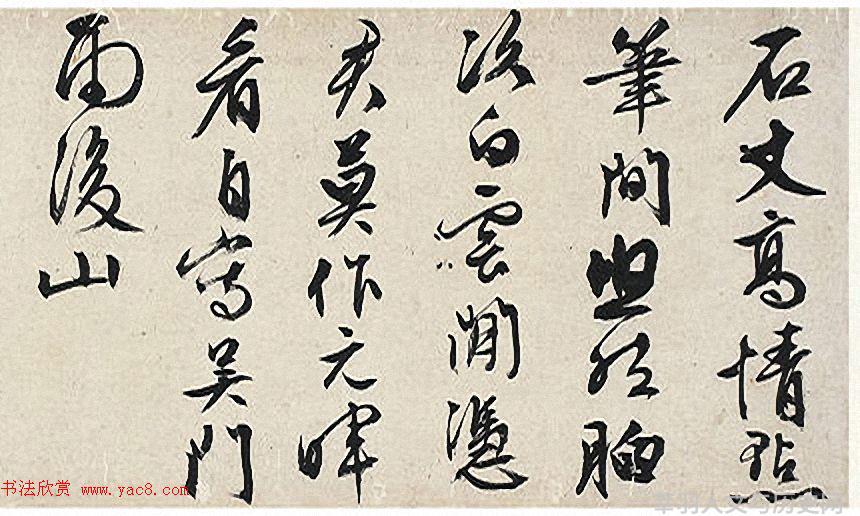 石丈高情點
筆間胸
次白雲閒憑
君莫作元暉
看自寫吳門
雨後山
书法欣赏 www.yac8.com